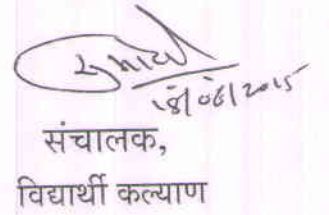 18/06/2015
संचालक,
विद्यार्थी कल्याण